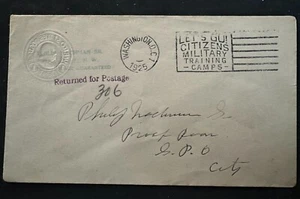 WASHINGTON, D.C. 1
1925
LET'S GO!
CITIZENS
MILITARY
TRAINING
CAMPS
Returned for Postage
306
Philip
Proof Room
G. P. O
City